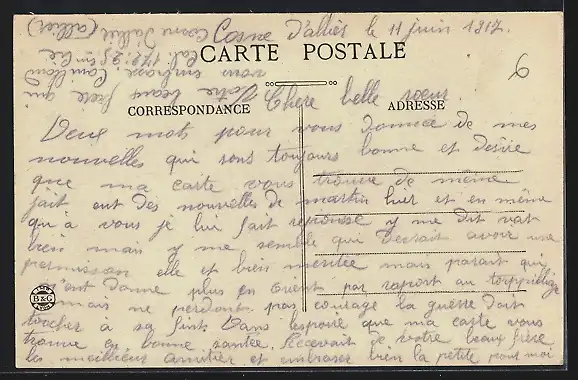 Cosne d'allier le 11 juin 1917.
CARTE POSTALE
CORRESPONDANCE
ADRESSE
Chere belle sœur
Deux mots pour vous donnée de mes
nouvelles qui sont toujours bonne et desire
que ma carte vous trouve de même
jait eut des nouvelles de martin hier et en même
qu'a vous je lui fait reponse y me dit vat
bien mais y me semble qui devrait avoir une
permission elle et bien meritee mais parait qui
ent donne plus en orient par raport au torppillage
mais ne perdont pas courage la guerre doit
toucher à sa fint. Dans lespoire que ma carte vous
trouve en bonne santée. Recevait de votre beau frère
les meilleur amitier et embraser bien la petite pour moi
Votre beau frère qui
vous embrase. Camille
Cosne d'allier (allier)
B & G
6